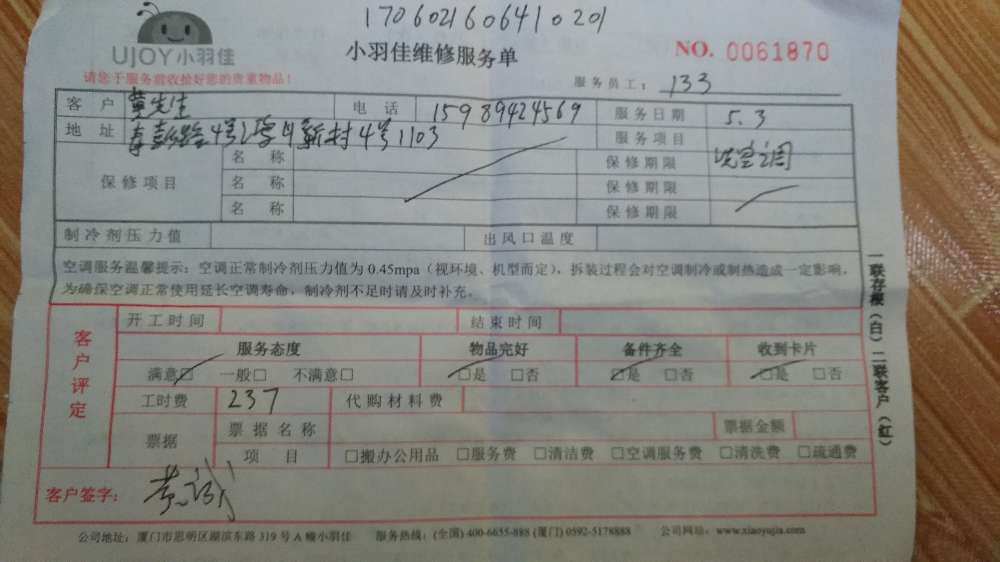 1706021606410201
UJOY小羽佳
小羽佳维修服务单
NO. 0061870
请您于服务前收拾好您的贵重物品!
服务员工: 133
客户 黄先生 电话 15989424569 服务日期 5.3
地址 4号 新村4号1103 服务项目
洗空调
保修项目 名称 保修期限
名称 保修期限
名称 保修期限
制冷剂压力值 出风口温度
空调服务温馨提示:空调正常制冷剂压力值为0.45mpa(视环境、机型而定),拆装过程会对空调制冷或制热造成一定影响,
为确保空调正常使用延长空调寿命,制冷剂不足时请及时补充。
客户评定
开工时间 结束时间
服务态度 物品完好 备件齐全 收到卡片
满意□ 一般□ 不满意□ □是 □否 □是 □否 □是 □否
工时费 237 代购材料费
票据 票据名称 票据金额
项目 □搬办公用品 □服务费 □清洁费 □空调服务费 □清洗费 □疏通费
客户签字:
一联存根(白) 二联客户(红)
公司地址:厦门市思明区湖滨东路319号A幢小羽佳 服务热线:(全国) 400-6655-888 (厦门) 0592-5178888 公司网站:www.xiaoyujia.com